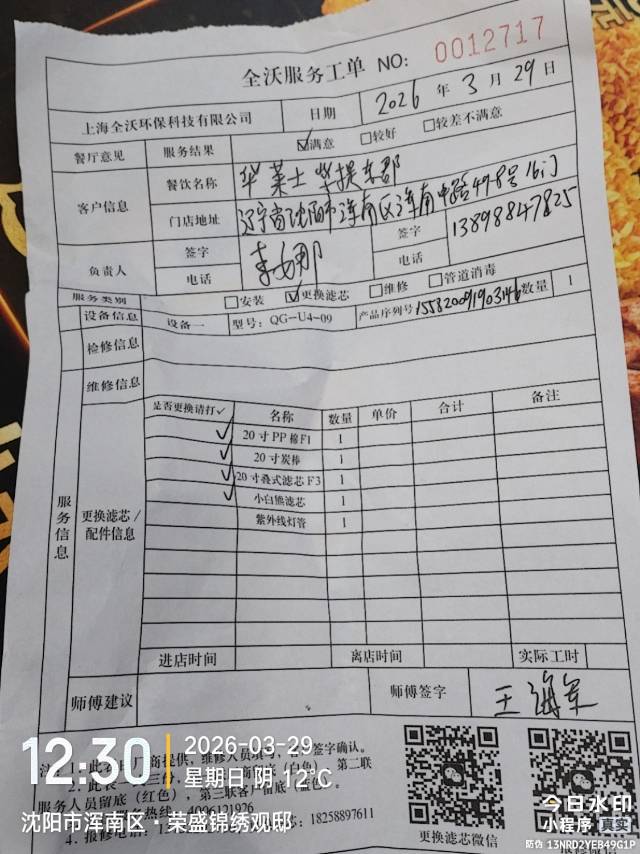 全沃服务工单 NO: 0012717
上海全沃环保科技有限公司 日期 2026 年 3 月 29 日
餐厅意见 服务结果 ☑满意 □较好 □较差不满意
客户信息 餐饮名称 华莱士
门店地址 辽宁省沈阳市浑南区浑南中路49-8号16门
负责人 签字 签字
电话 电话 13898847825
服务类别 □安装 ☑更换滤芯 □维修 □管道消毒
设备信息 设备一 型号: QG-U4-09 产品序列号 数量 1
检修信息
维修信息
服务信息
更换滤芯/配件信息
是否更换请打✓ 名称 数量 单价 合计 备注
✓ 20寸PP棉F1 1
✓ 20寸炭棒 1
✓ 20寸叠式滤芯F3 1
✓ 小白熊滤芯 1
紫外线灯管 1
进店时间 离店时间 实际工时
师傅建议 师傅签字 王海军
签字确认。
（白色） 第二联
服务人员留底（红色），第三联客户留底
4096121926
4. 报修电话 18258897611
更换滤芯微信
12:30 2026-03-29
星期日 阴 12℃
沈阳市浑南区·荣盛锦绣观邸
今日水印
小程序 真实
防伪 13NRD2YEB49G1P